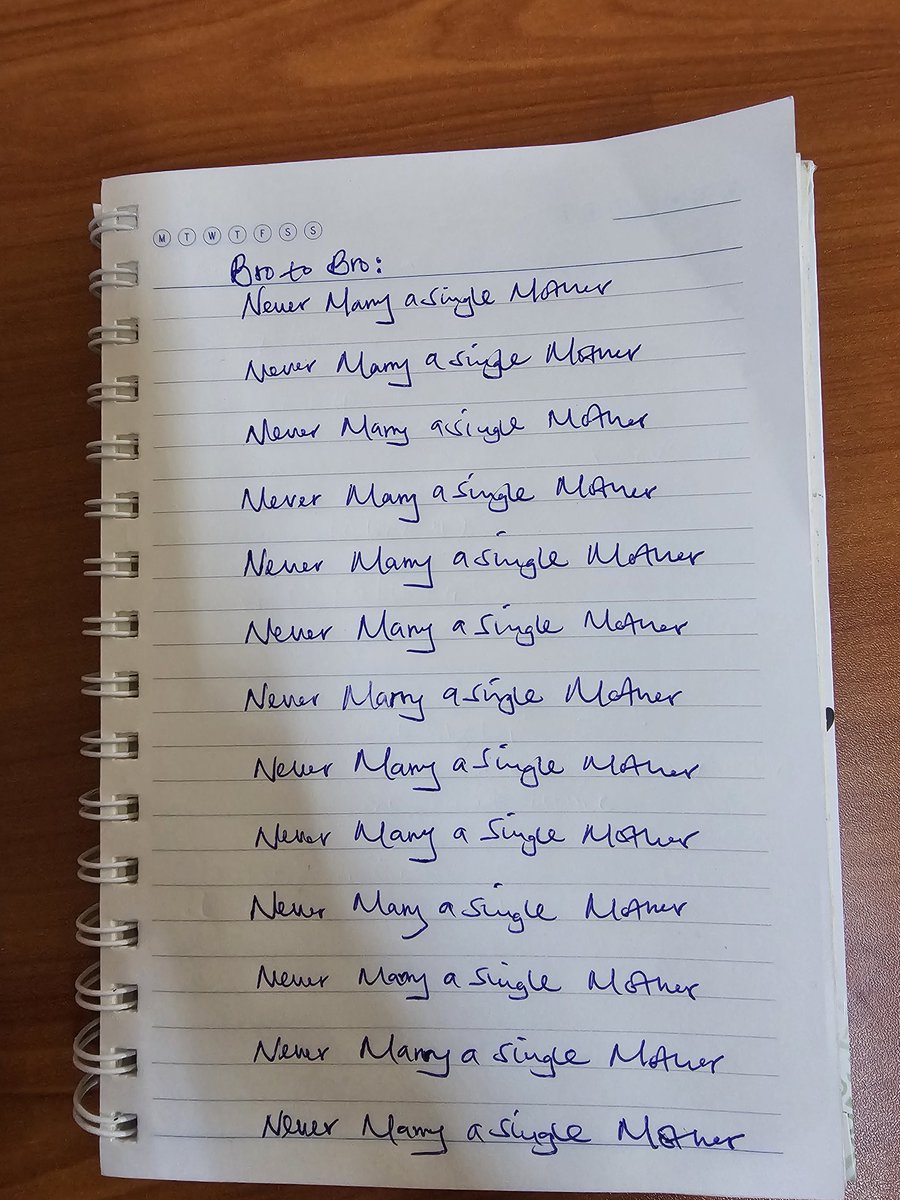 M T W T F S S
Bro to Bro:
Never Marry a single Mother
Never Marry a single Mother
Never Marry a single Mother
Never Marry a single Mother
Never Marry a single Mother
Never Marry a single Mother
Never Marry a single Mother
Never Marry a single Mother
Never Marry a single Mother
Never Marry a single Mother
Never Marry a single Mother
Never Marry a single Mother
Never Marry a single Mother